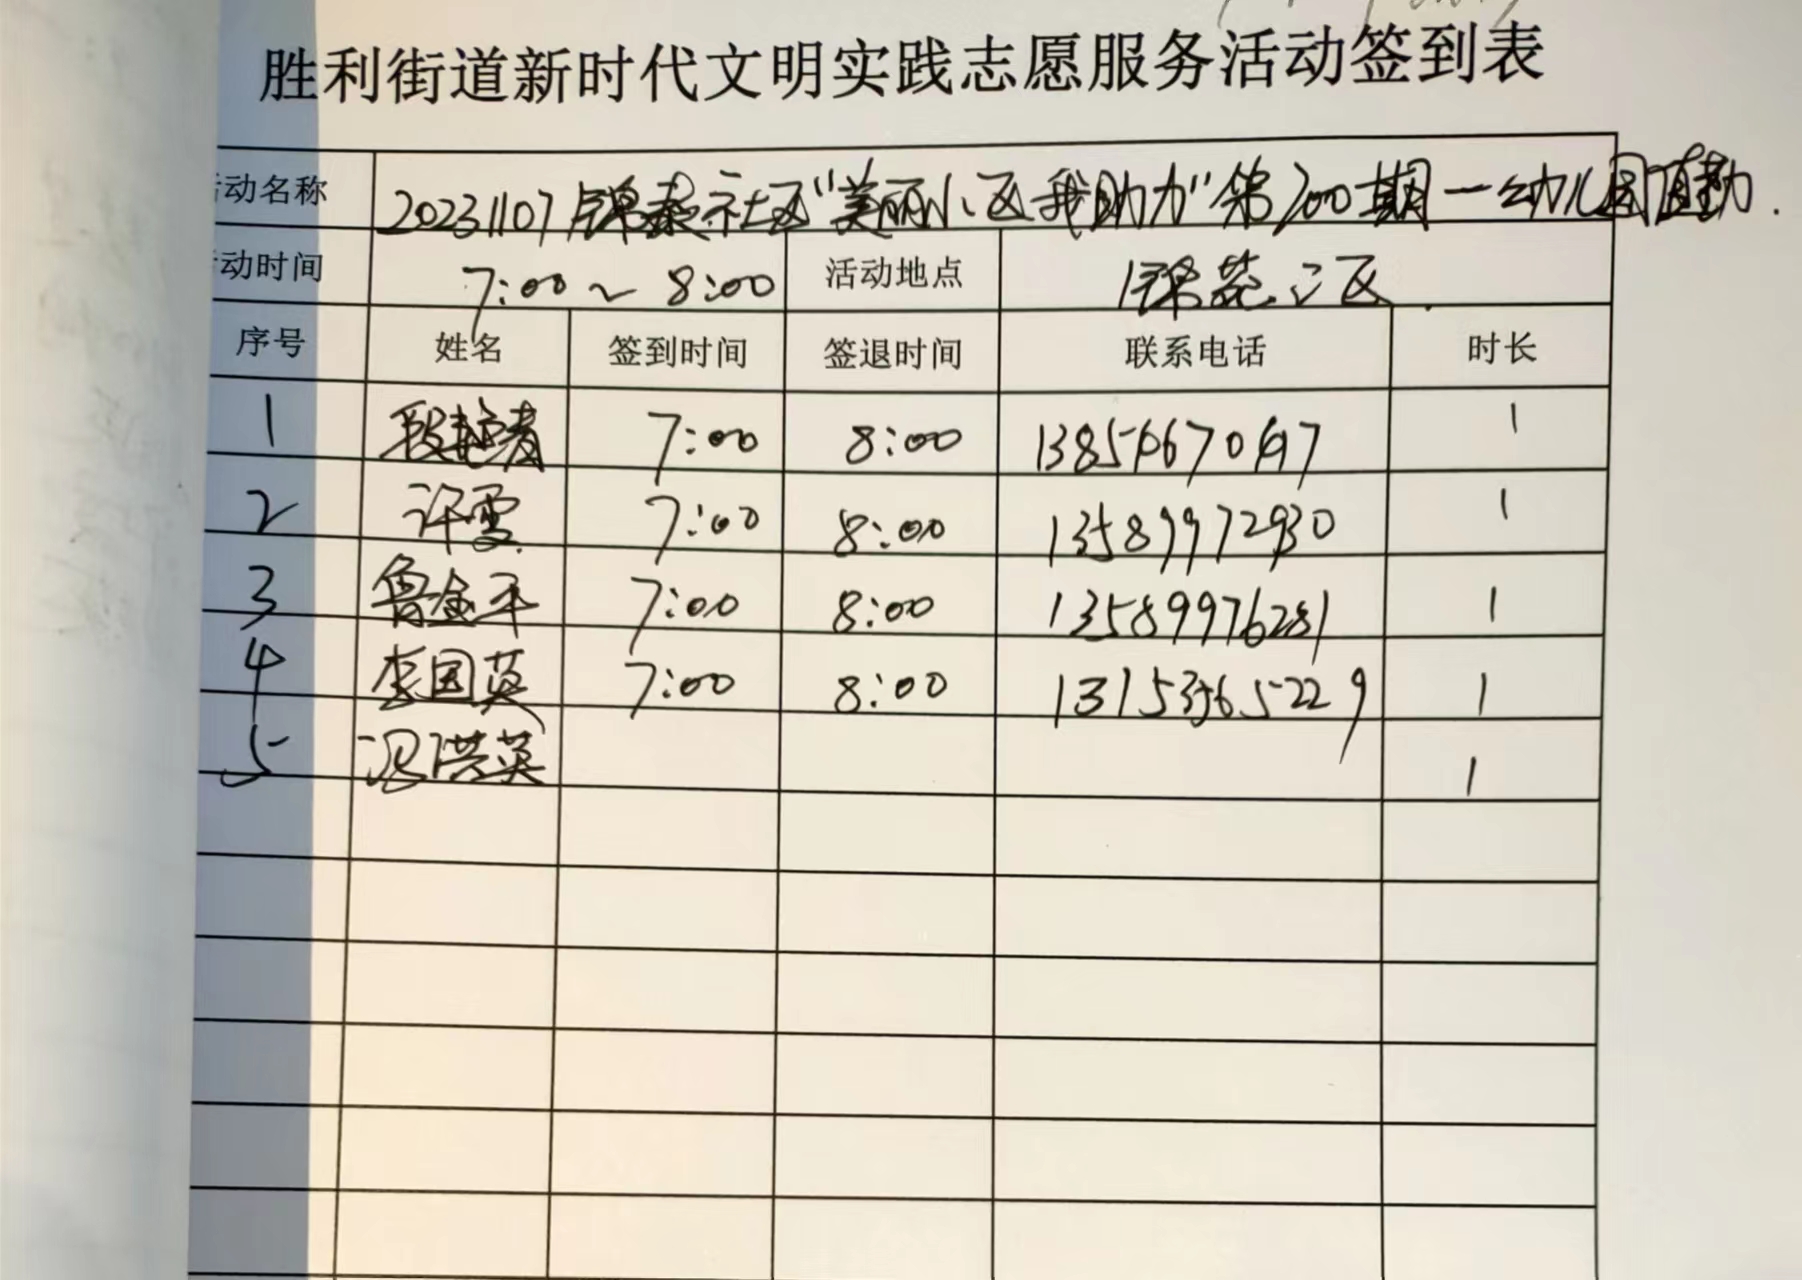 胜利街道新时代文明实践志愿服务活动签到表
活动名称 20231107锦泰社区“美丽小区我助力”第200期一幼儿园值勤.
活动时间 7:00~8:00 活动地点 锦苑二区.
序号 姓名 签到时间 签退时间 联系电话 时长
1 7:00 8:00 1
2 许雪 7:00 8:00 13589972930 1
3 鲁金平 7:00 8:00 13589976281 1
4 李国英 7:00 8:00 13153565229 1
5 冯洪英 1